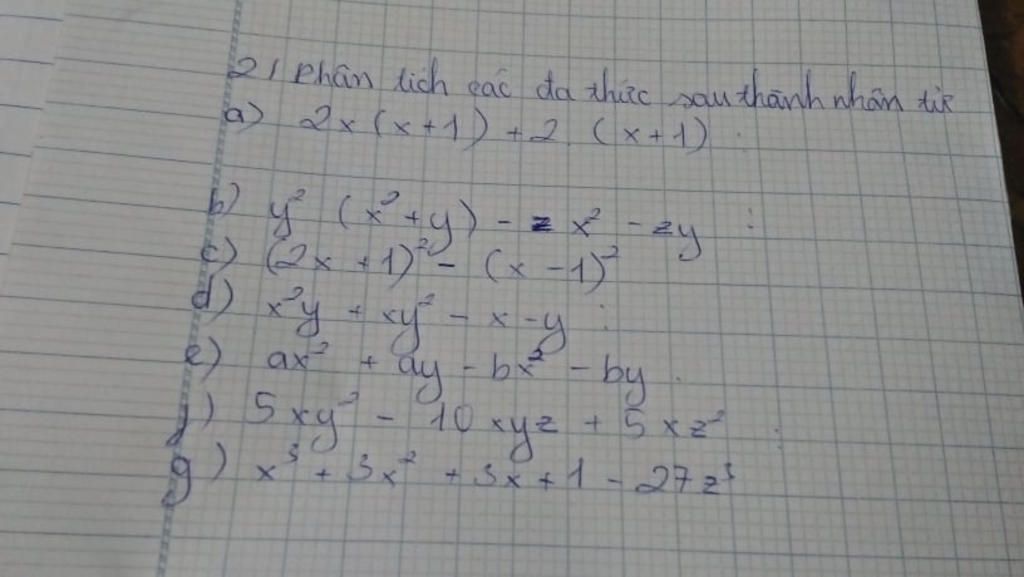 2, Phân tích các đa thức sau thành nhân tử
a) 2x(x+1) + 2 (x+1)
b) y² (x²+y) - zx² - zy
c) (2x+1)² - (x-1)²
d) x²y + xy² - x - y
e) ax² + ay - bx² - by
f) 5xy² - 10xyz + 5xz²
g) x³ + 3x² + 3x + 1 - 27z³